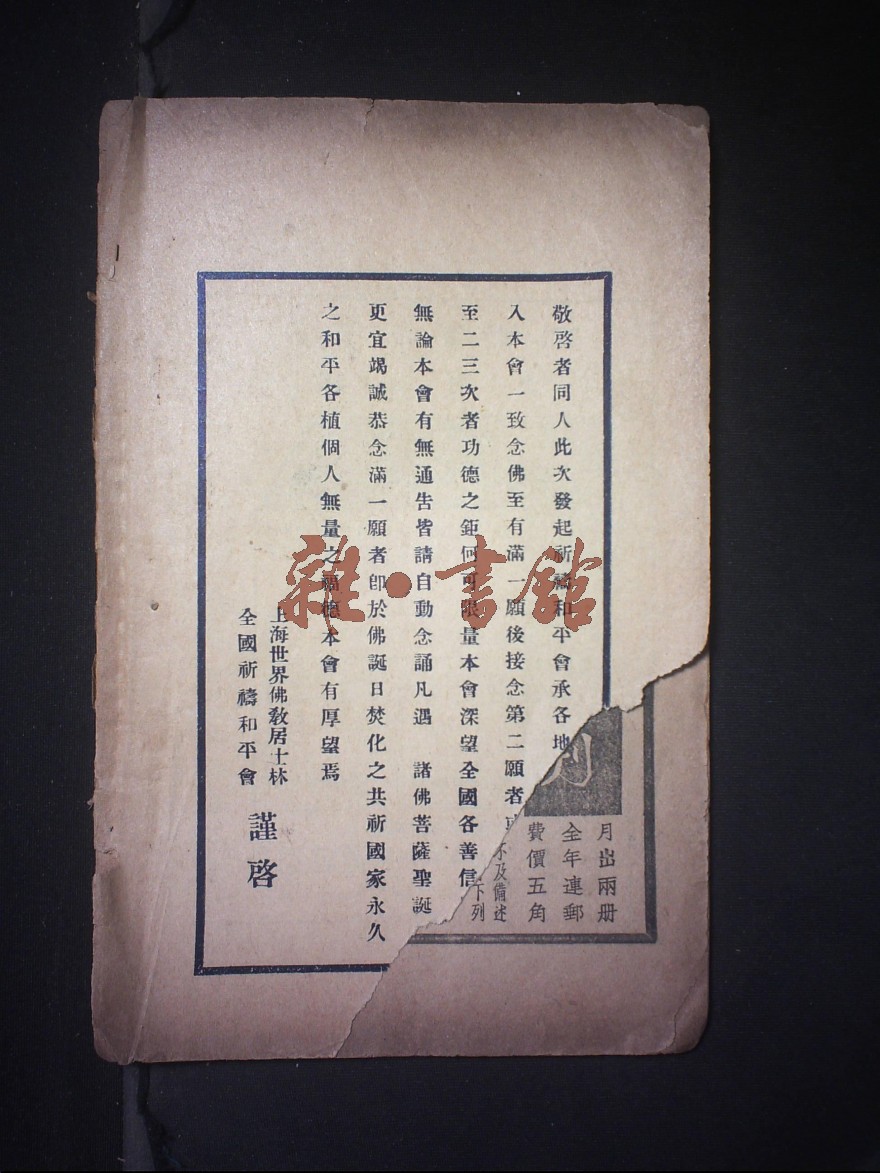 敬啓者同人此次發起祈禱和平會承各地
入本會一致念佛至有滿一願後接念第二願者
至二三次者功德之鉅何可限量本會深望全國各善信
無論本會有無通告皆請自動念誦凡遇　諸佛菩薩聖誕
更宜竭誠恭念滿一願者卽於佛誕日焚化之共祈國家永久
之和平各植個人無量之福德本會有厚望焉
上海世界佛敎居士林
全國祈禱和平會
謹啓
月出兩册
全年連郵
費價五角
不及備述
下列
雜·書館